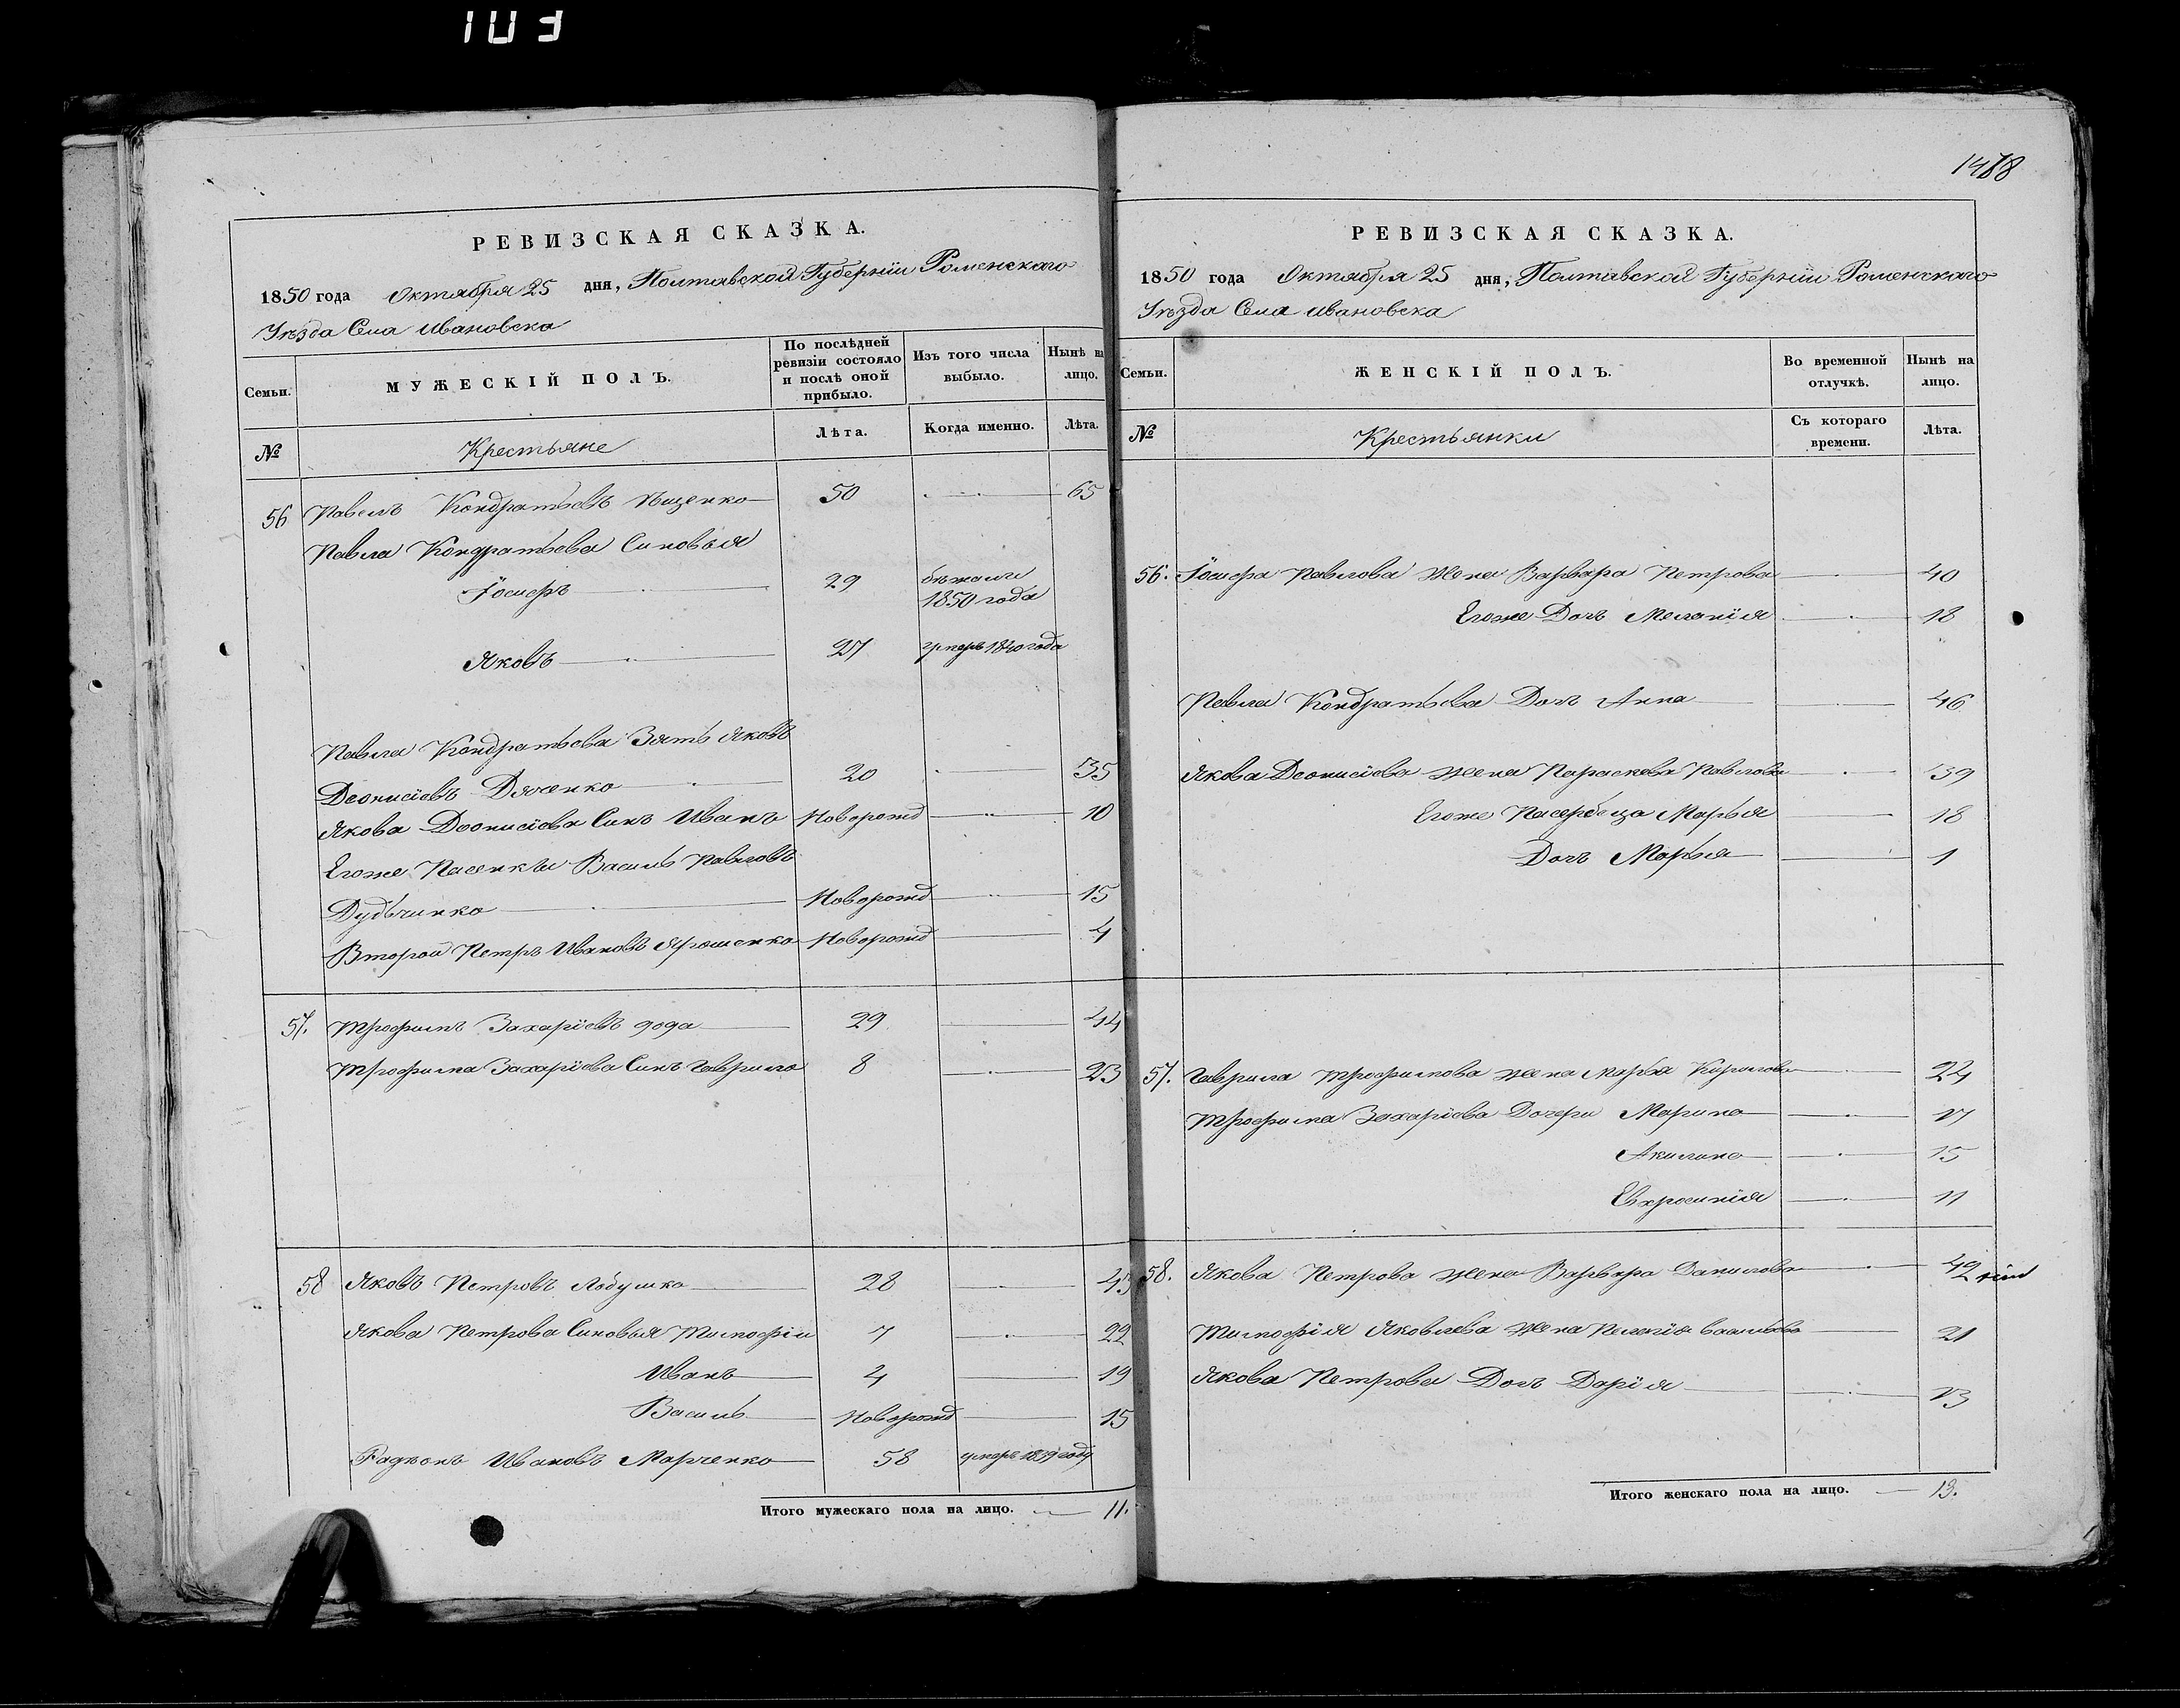 103
РЕВИЗСКАЯ СКАЗКА.
1850 года Октября 25 дня, Полтавской Губерніи Роменскаго
Уѣзда Села Ивановска
Семьи.
МУЖЕСКІЙ ПОЛЪ.
По послѣдней ревизіи состояло и послѣ оной прибыло.
Изъ того числа выбыло.
Нынѣ на лицо.
№
Крестьяне
Лѣта.
Когда именно.
Лѣта.
56 Павелъ Кондратьевъ 50 65
Павла Кондратьева Синовья
Іосифъ 29 бѣжалъ 1850 года
Яковъ 27 умеръ 1840 года
Павла Кондратьева Зять Яковъ
Деонисіевъ Дяченко 20 35
Якова Деонисіева Синъ Иванъ Новорожд 10
Егоже Пасенки Василь Павловъ
Дубчинко Новорожд 15
Второй Петръ Ивановъ Ярошенко Новорожд 4
57. Трофимъ Захаріевъ 29 44
Трофима Захаріева Синъ Гаврило 8 23
58 Яковъ Петровъ Лобушко 28 43
Якова Петрова Синовья Тимофій 7 22
Иванъ 4 19
Василь Новорожд 15
Радионъ Ивановъ Марченко 58 умеръ 1839 году
Итого мужескаго пола на лицо. 11.
1488
РЕВИЗСКАЯ СКАЗКА.
1850 года Октября 25 дня, Полтавской Губерніи Роменскаго
Уѣзда Села Ивановска
Семьи.
ЖЕНСКІЙ ПОЛЪ.
Во временной отлучкѣ.
Нынѣ на лицо.
№
Крестьянки
Съ котораго времени.
Лѣта.
56. Іосифа Павлова Жена Варвара Петрова 40
Егоже Дочъ Меланія 18
Павла Кондратьева Дочъ Анна 46
Якова Деонисіева жена Параскева Павлова 39
Егоже Пасербица Марья 18
Дочъ Марья 1
57. Гаврила Трофимова жена Марья Кирилова 24
Трофима Захаріева Дочери Марина 17
Акилина 15
Евхросинія 11
58. Якова Петрова жена Варвара Данилова 42
Тимофія Яковлева жена Пелагія Васильева 21
Якова Петрова Дочъ Дарія 13
Итого женскаго пола на лицо. 13.